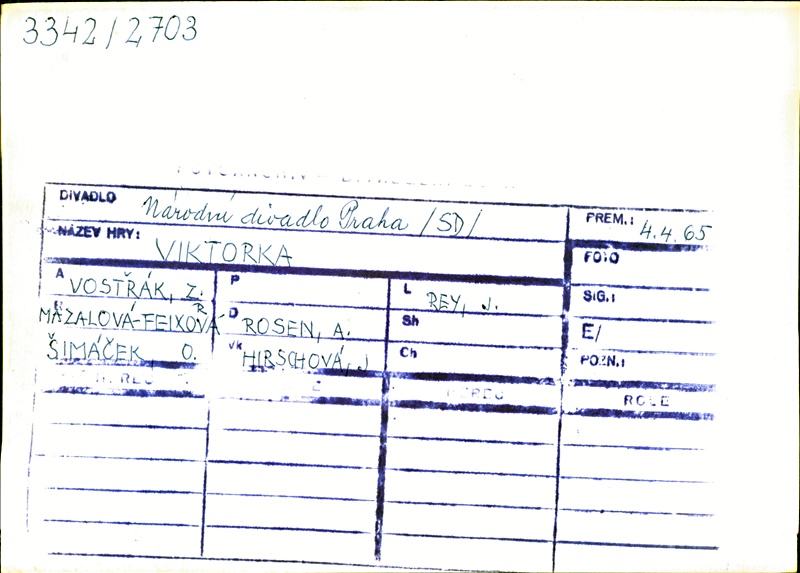 3342/2703
DIVADLO Národní divadlo Praha /SD/ PREM.: 4.4.65
NÁZEV HRY: VIKTORKA FOTO
A VOSTŘÁK, Z. P L REY, J. SIG.:
MAZALOVÁ-FEIXOVÁ R D ROSEN, A. Sh E/
ŠIMÁČEK, O. Vk HIRSCHOVÁ, J Ch POZN.:
ROLE